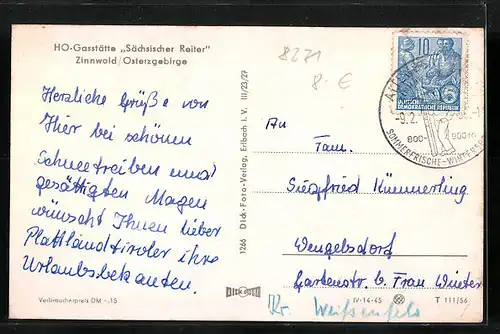 HO-Gasstätte „Sächsischer Reiter"
Zinnwald/Osterzgebirge
Herzliche Grüße von
Hier bei schönem
Schneetreiben und
gesättigten Magen
wünscht Ihnen lieber
Plattlandtiroler ihre
Urlaubsbekanten.
Verbraucherpreis DM -.15
1266 Dick-Foto-Verlag, Erlbach i. V. III/23/27
DICK
8271
8.- €
10
DEUTSCHE
DEMOKRATISCHE REPUBLIK
-9.2.
800-
900 m
SOMMERFRISCHE-WINTER
An
Fam.
Siegfried Kümmerling
Wengelsdorf
Gartenstr. b. Frau Winter
Kr. Weißenfels
IV-14-45
T 111/56